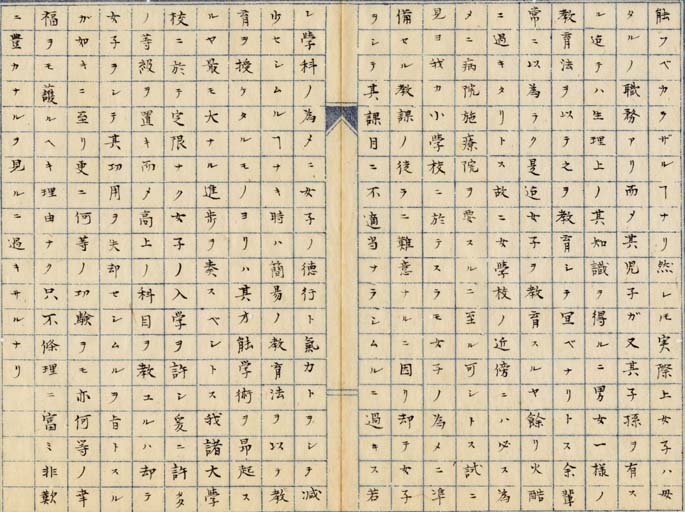 触フベカヲザルヿナリ然レモ実際上女子ハ毋
タルノ職務アリ而メ其児子ガ又其子孫ヲ有ス
ル迠テハ生理上ノ其知識ヲ得ルニ男女一様ノ
教育法ヲ以テ之ヲ教育シテ冝ベナリトス余輩
常ニ以為ラク是迠女子ヲ教育スルヤ餘リ火酷
ニ過キタリトス故ニ女學校ノ近傍ニハ必ス為
メニ病院施療院ヲ要スルニ至ル可シト試ニ
見ヨ我カ小學校ニ於テスラモ女子ノ為メニ準
備セル教課ノ徒ラニ難意ナルニ因リ却テ女子
ヲシテ其課目ニ不適当ナラシムルニ過キス若
シ學科ノ為メニ女子ノ徳行ト氣力トヲシテ減
少セシムルヿナキ時ハ簡昜ノ教育法ヲ以ク教
育ヲ授ケタルモノヨリハ其方䏻学術ヲ昻起ス
ルヤ最モ大ナル進歩ヲ奏スベシトス我諸大學
校ニ於テ定限ナク女子ノ入学ヲ許シ爰ニ許多
ノ等級ヲ置キ而メ高上ノ科目ヲ教ユルハ却テ
女子ヲシテ其功用ヲ失却セシムルヲ旨トスル
ガ如キニ至リ更ニ何等ノ功験ヲモ亦何等ノ幸
福ヲモ護ルヘキ理由ナク只不條理ニ富ミ非歎
ニ豊カナルヲ見ルニ過キサルナリ